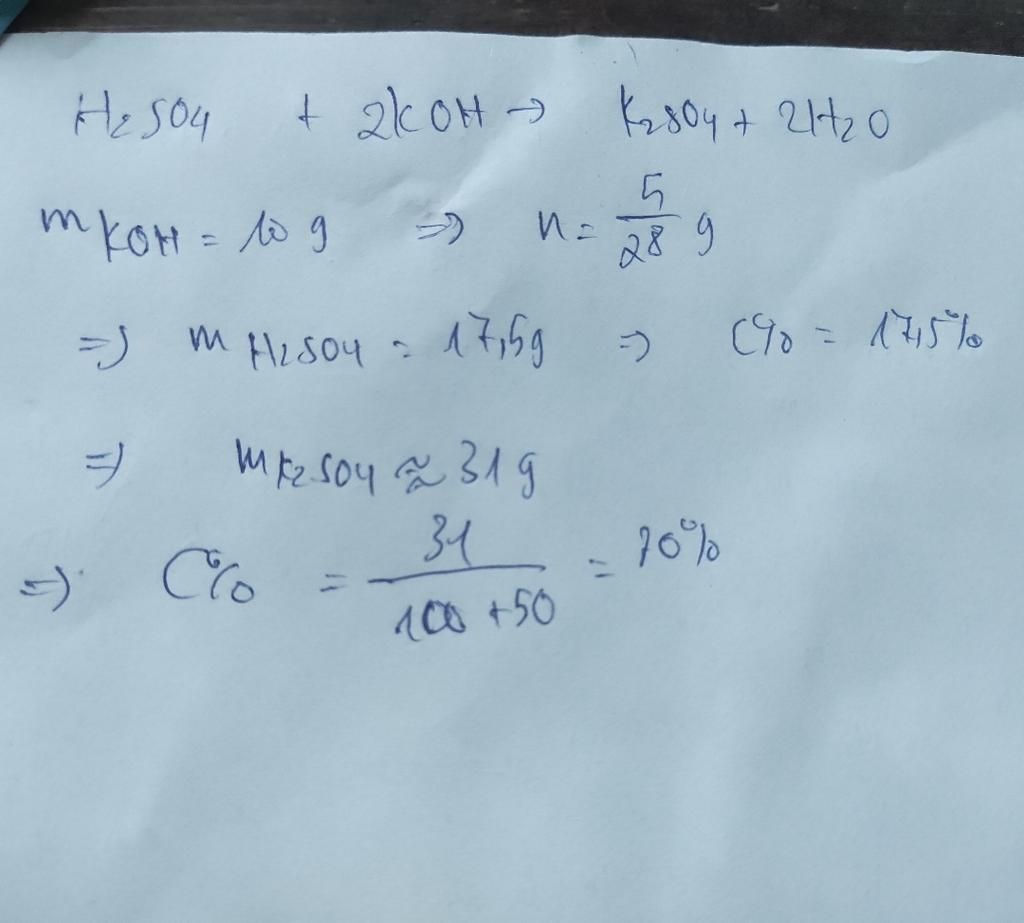 H2SO4 + 2KOH → K2SO4 + 2H2O
mKOH = 10 g ⇒ n = 5/28 g
⇒ mH2SO4 = 17,5g ⇒ C% = 17,5%
⇒ mK2SO4 ≈ 31 g
⇒ C% = 31/(100 + 50) = 70%